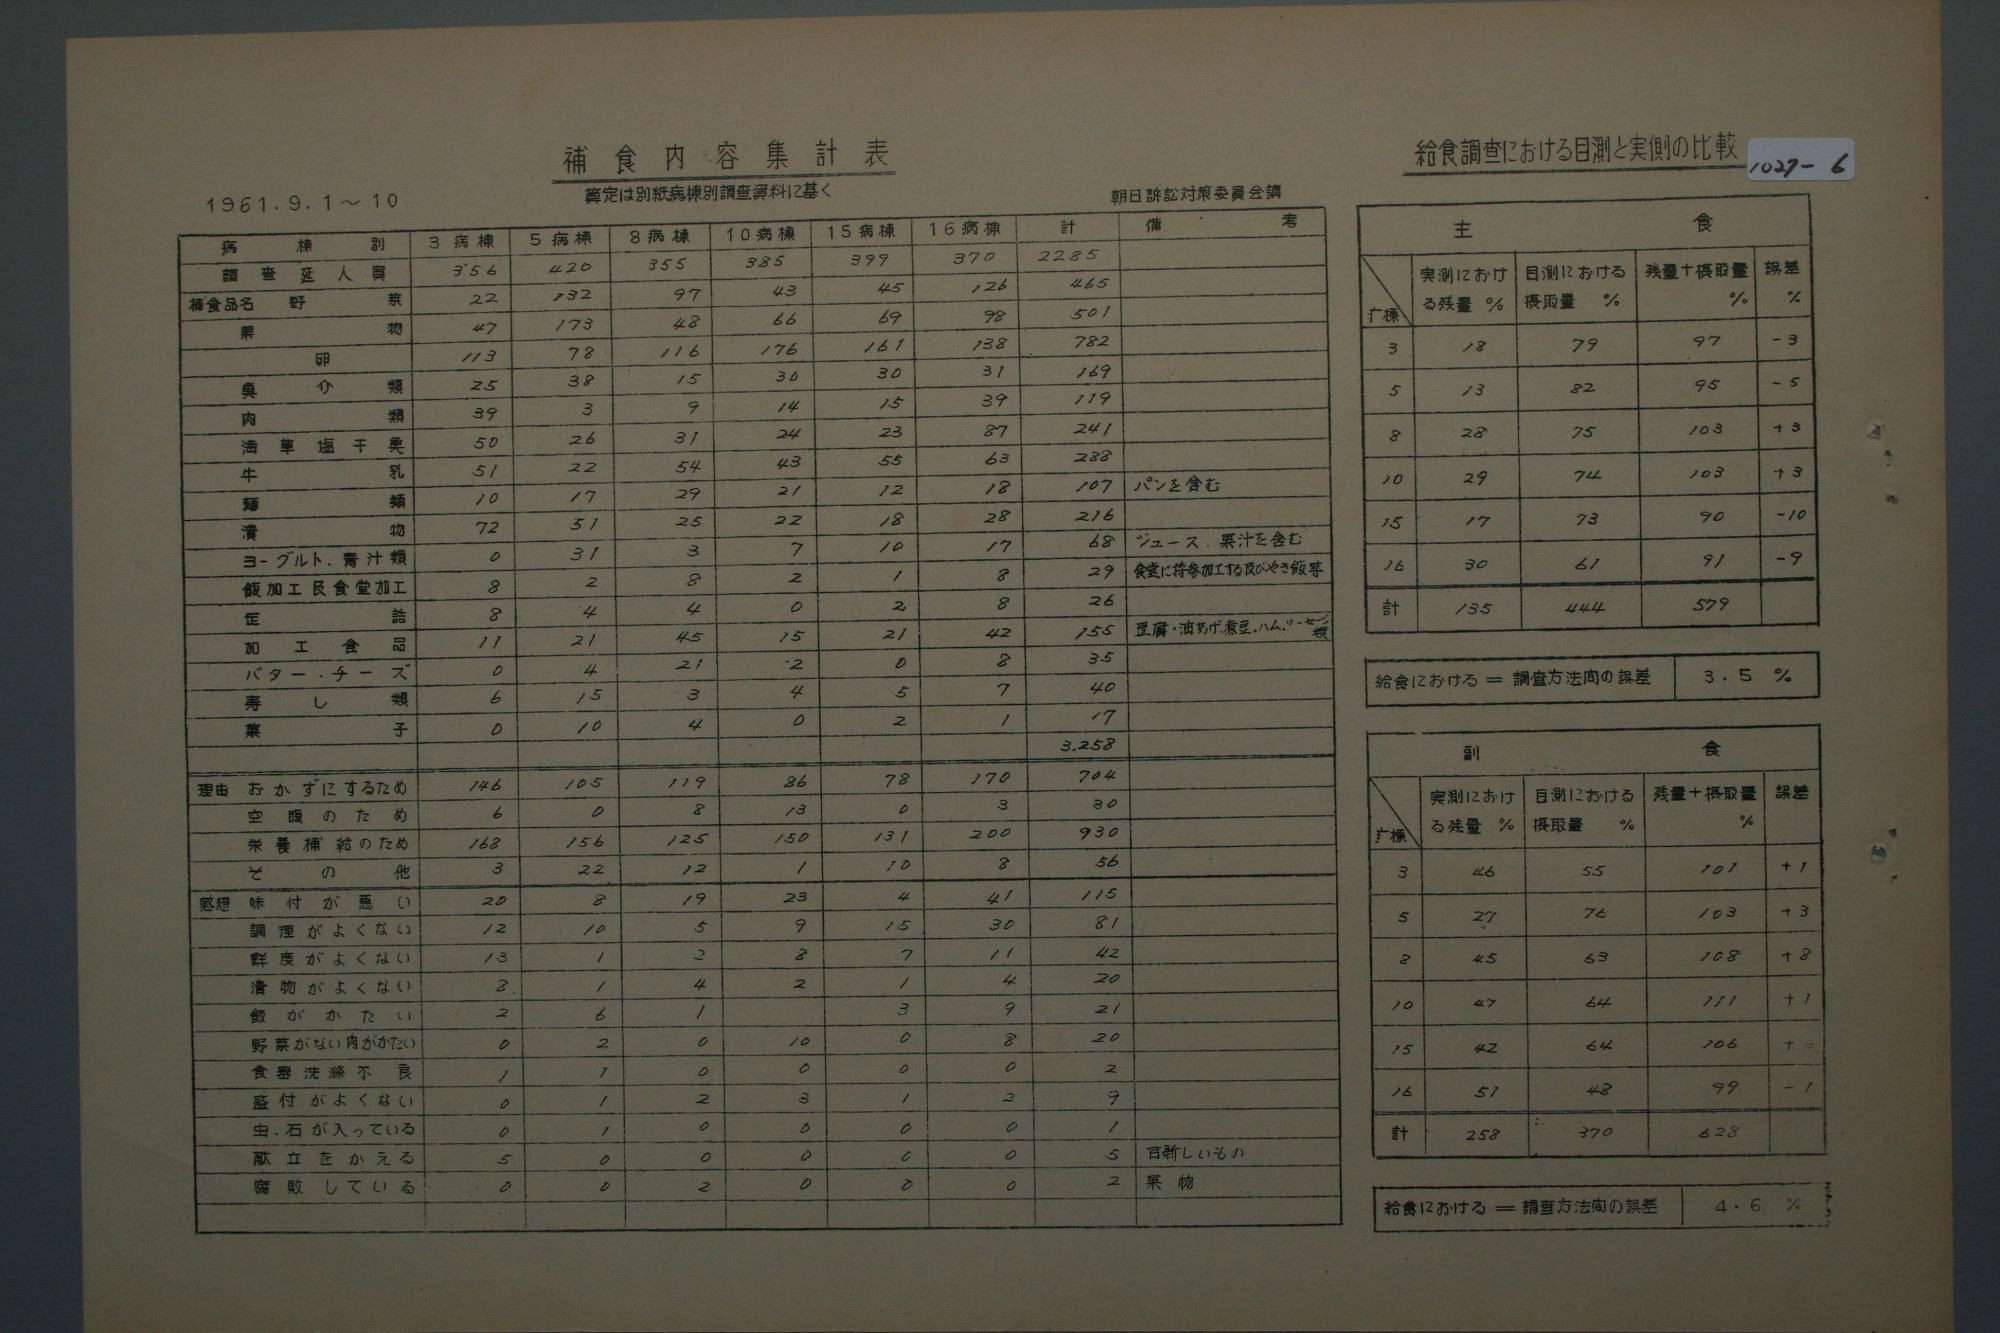 補食内容集計表
算定は別紙病棟別調査資料に基く
1961.9.1～10
朝日訴訟対策委員会調
病棟別 3病棟 5病棟 8病棟 10病棟 15病棟 16病棟 計 備考
調査延人員 356 420 355 385 399 370 2285
補食品名 野菜 22 132 97 43 45 126 465
果物 47 173 48 66 69 98 501
卵 113 78 116 176 161 138 782
魚介類 25 38 15 30 30 31 169
肉類 39 3 9 14 15 39 119
海草塩干魚 50 26 31 24 23 87 241
牛乳 51 22 54 43 55 63 288
麺類 10 17 29 21 12 18 107 パンを含む
漬物 72 51 25 22 18 28 216
ヨーグルト.青汁類 0 31 3 7 10 17 68 ジュース.果汁を含む
飯加工及食堂加工 8 2 8 2 1 8 29 食堂に持参加工する及びやき飯等
缶詰 8 4 4 0 2 8 26
加工食品 11 21 45 15 21 42 155 豆腐・油あげ.煮豆.ハム.ソーセージ類
バター.チーズ 0 4 21 2 0 8 35
寿し類 6 15 3 4 5 7 40
菓子 0 10 4 0 2 1 17
3.258
理由 おかずにするため 146 105 119 86 78 170 704
空腹のため 6 0 8 13 0 3 30
栄養補給のため 168 156 125 150 131 200 930
その他 3 22 12 1 10 8 56
感想 味付が悪い 20 8 19 23 4 41 115
調理がよくない 12 10 5 9 15 30 81
鮮度がよくない 13 1 2 8 7 11 42
漬物がよくない 8 1 4 2 1 4 20
飯がかたい 2 6 1 3 9 21
野菜がない肉がかたい 0 2 0 10 0 8 20
食器洗滌不良 1 1 0 0 0 0 2
盛付がよくない 0 1 2 3 1 2 9
虫.石が入っている 0 1 0 0 0 0 1
献立をかえる 5 0 0 0 0 0 5 目新しいもの
腐敗している 0 0 2 0 0 0 2 果物
給食調査における目測と実側の比較
1027-6
主食
疒棟 実測における残量 % 目測における摂取量 % 残量+摂取量 % 誤差 %
3 18 79 97 -3
5 13 82 95 -5
8 28 75 103 +3
10 29 74 103 +3
15 17 73 90 -10
16 30 61 91 -9
計 135 444 579
給食における = 調査方法間の誤差 3.5 %
副食
疒棟 実測における残量 % 目測における摂取量 % 残量+摂取量 % 誤差
3 46 55 101 +1
5 27 76 103 +3
8 45 63 108 +8
10 47 64 111 +1
15 42 64 106 +
16 51 48 99 -1
計 258 370 628
給食における = 調査方法間の誤差 4.6 %